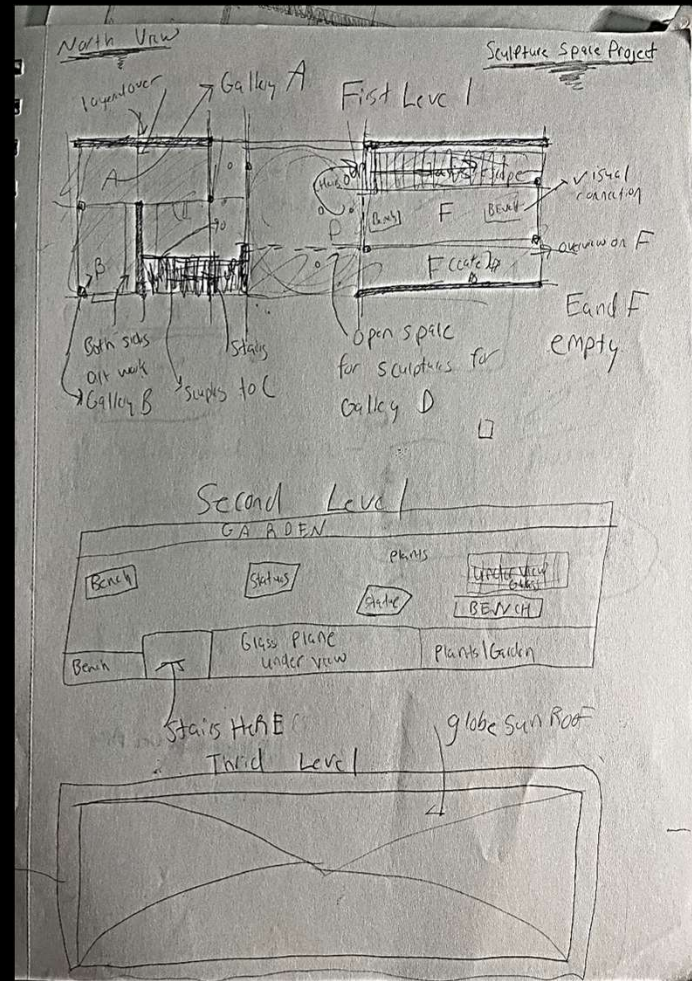 North View
Sculpture Space Project
Layered over
Gallery A
Fist Level
A
visual
connection
Bench
F
BEnch
D
overview on F
B
F
E and F
empty
Both sids
art work
Gallery B
Stairs
to C
Open space
for sculptures for
Gallery D
Second Level
GARDEN
Plants
Bench
Statues
Statue
under view
Glass
BENCH
Bench
Glass Plane
under view
Plants/Garden
Stairs HeRE
globe Sun RooF
Thrid Level